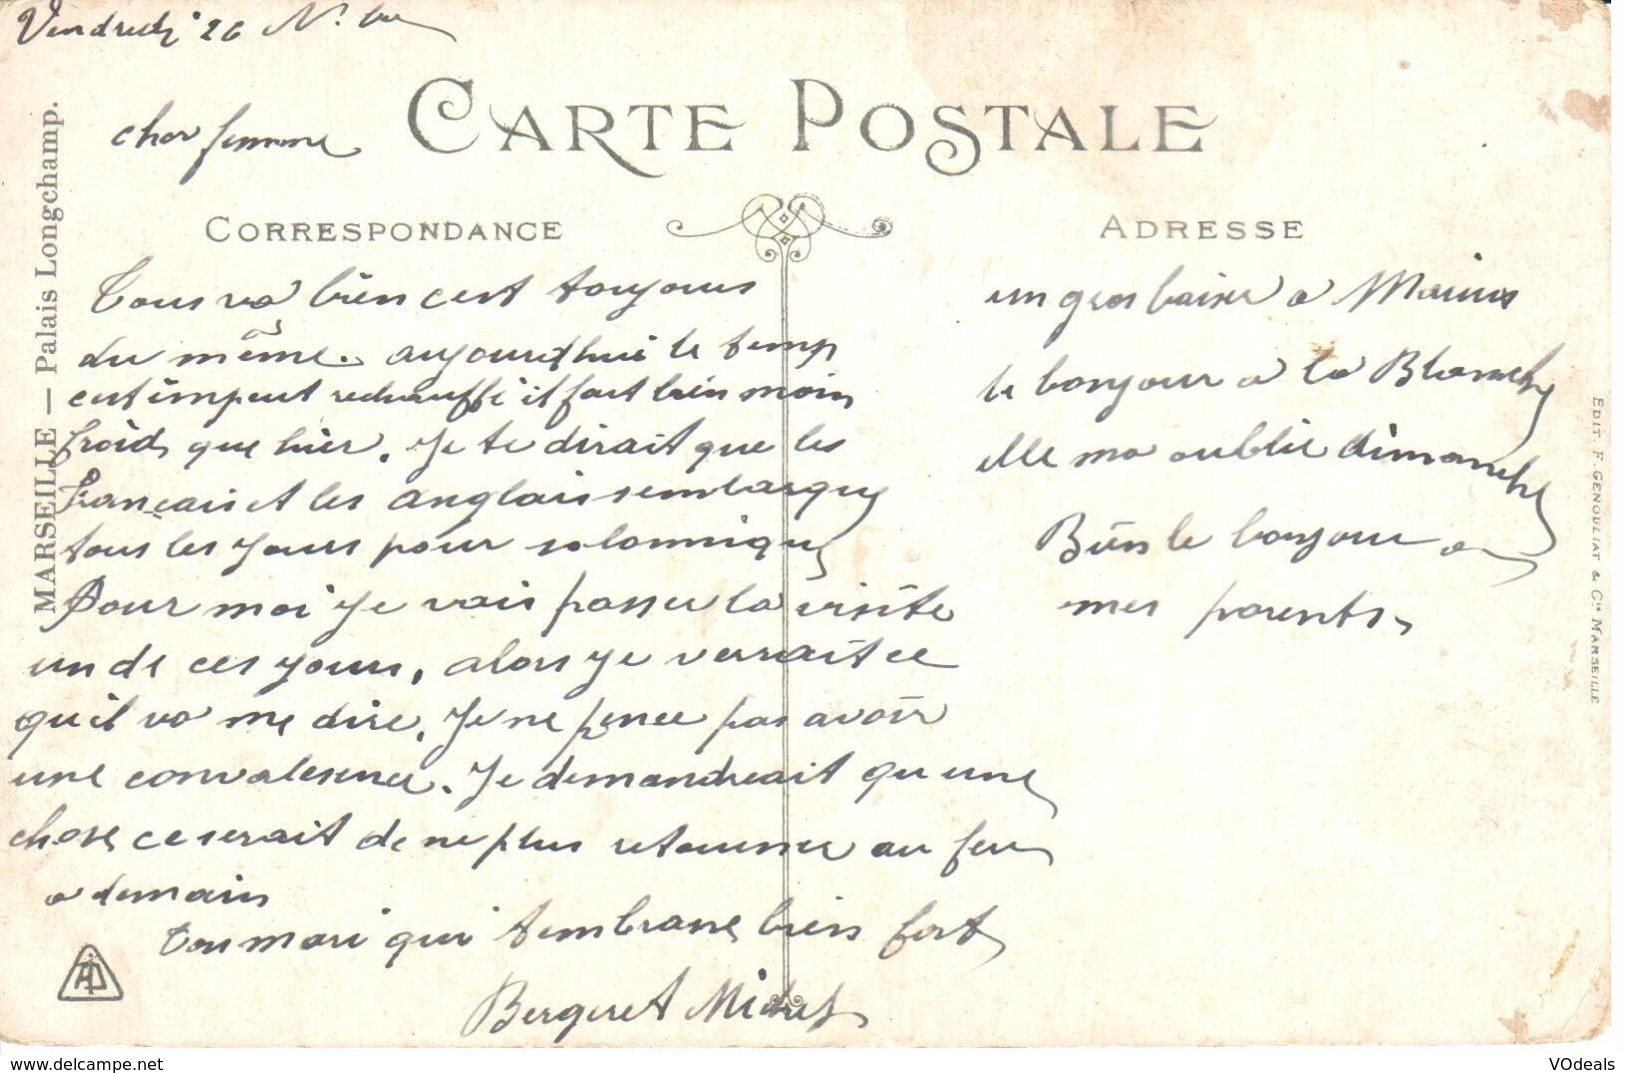 Vendredi 26 N.bre
cher femme
CARTE POSTALE
CORRESPONDANCE
ADRESSE
MARSEILLE — Palais Longchamp.
Tous va bien cest toujours
du même. aujourdhui le temp
cest impeut rechauffé il fait bien moin
froid que hier. Je te dirait que les
français et les anglais sembarque
tous les jours pour salonnique
Pour moi je vais passer la visite
un de ces jours, alors je verrait ce
quil va me dire. Je ne pence pas avoir
une convalesence. Je demandreait qu une
chose ce serait de ne plus retourner au feu
a demain
Ton mari qui tembrasse bien fort
Bergeret
un gros baiser a Marius
le bonjour a la Blanche
elle ma oublie dimanche
Bien le bonjour a
mes parents.
EDIT. F. GENOULIAT & Cie MARSEILLE
AD
VOdeals